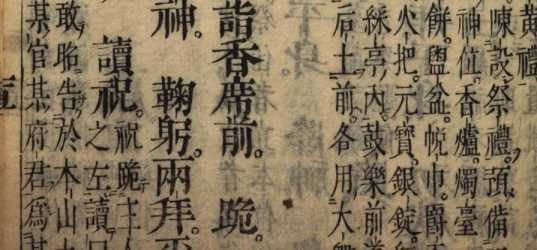 黃禮
陳設祭禮。預備
神位。香爐。燭臺
餅。盥盆。帨巾。爵
火把。元寶。銀錠。
綵亭。內。鼓樂前
后土前。各用大
詣香席前。跪。
神。鞠躬。兩拜。
讀祝。祝跪主人
之左讀
敢昭告於本山
某官某府君為某